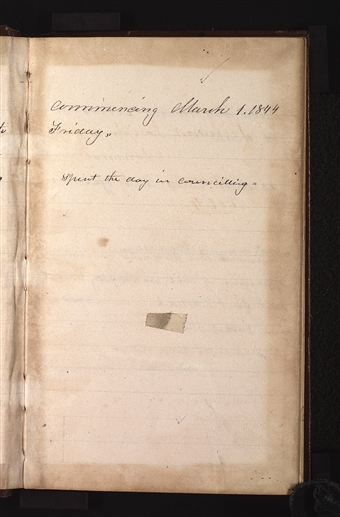 commencing March 1. 1844
Friday,,
Spent the day in councilling=